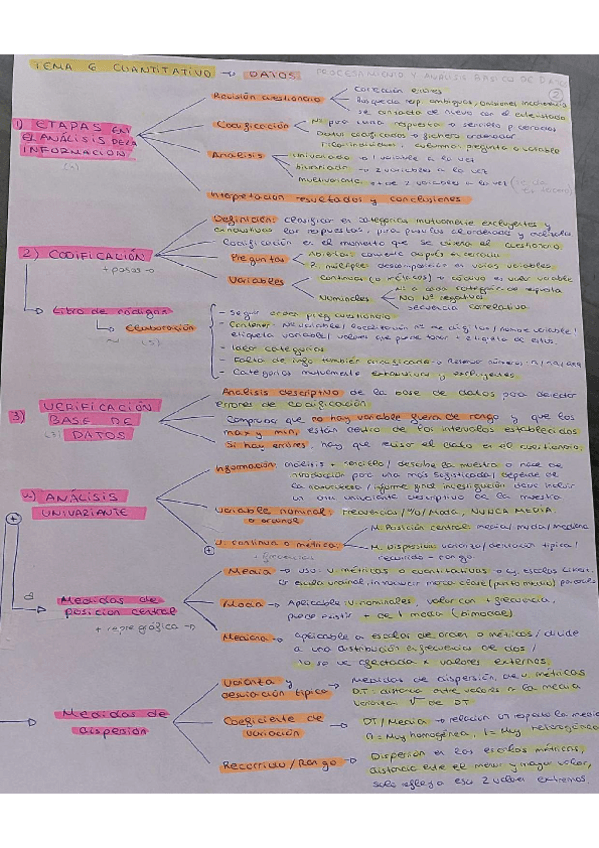 TEMA 6 CUANTITATIVO → DATOS PROCESAMIENTO Y ANÁLISIS BÁSICO DE DATOS
2
1) ETAPAS EN EL ANÁLISIS DE LA INFORMACIÓN
(4)
Revisión cuestionario
Corrección errores
Búsqueda resp. ambiguas, omisiones, incoherencia
se contacta de nuevo con el entrevistado
Codificación
Nº para cada respuesta → sencillo p. cerradas
Datos codificados → fichero ordenador
Análisis
Univariado → 1 variable a la vez
bivariado → 2 variables a la vez
multivariante → + de 2 variables a la vez
Interpretación resultados y conclusiones
2) CODIFICACIÓN
+ pasos →
Definición: clasificar en categorías mutuamente excluyentes y
exhaustivas las respuestas, para
Codificación en el momento que se diseña el cuestionario
Preguntas
Abiertas: convertir después en cerradas
P. múltiples: descomponerlas en varias variables
Variables
Continuas (o métricas) → código es valor variable
Nº a cada categoría de respuesta
Nominales
No Nº negativos
secuencia correlativa
Libro de códigos
Elaboración
(5)
- Seguir orden preg cuestionario
- Contener: Nº variable / localización / nº de dígitos / nombre variable /
etiqueta variable / valores que puede tomar + etiqueta de estos.
categorías
- Falta de info también codificada →
- Categorías mutuamente exhaustivas y excluyentes.
3) VERIFICACIÓN BASE DE DATOS
Análisis descriptivo de la base de datos para detectar
errores de codificación
Comprobar que no hay variable fuera de rango y que los
max y min, están dentro de los intervalos establecidos
Si hay errores, hay que revisar el dato en el cuestionario,
4) ANÁLISIS UNIVARIANTE
Información: análisis + sencillo / describe la muestra o hace de
introducción para una más sofisticada / depende de
la naturaleza / informe final investigación debe incluir
un univariante descriptivo de la muestra
Variable nominal: Frecuencias / % / Moda, NUNCA MEDIA.
o ordinal
V. continua o métrica:
M. Posición central: media / moda / mediana
M. Dispersión: varianza / desviación típica /
recorrido - rango.
+
Medidas de posición central
+ repre gráfica →
Media → uso: V. métricas o cuantitativas o
Moda → Aplicable: V. nominales, valor con + frecuencia,
puede existir + de 1 moda (bimodal)
Mediana → aplicable a escalas de orden o métricas / divide
a una distribución en frecuencias de dos /
no se ve afectada x valores extremos.
Medidas de dispersión
Varianza y desviación típica → Medidas de dispersión de v. métricas
DT: distancia entre valores a la media
Varianza √ de DT
Coeficiente de variación → DT / Media → relación DT respecto la media
0 = Muy homogénea, 1 = Muy heterogénea
Recorrido / Rango → Dispersión en las escalas métricas,
distancia entre el menor y mayor valor,
solo refleja esos 2 valores extremos.